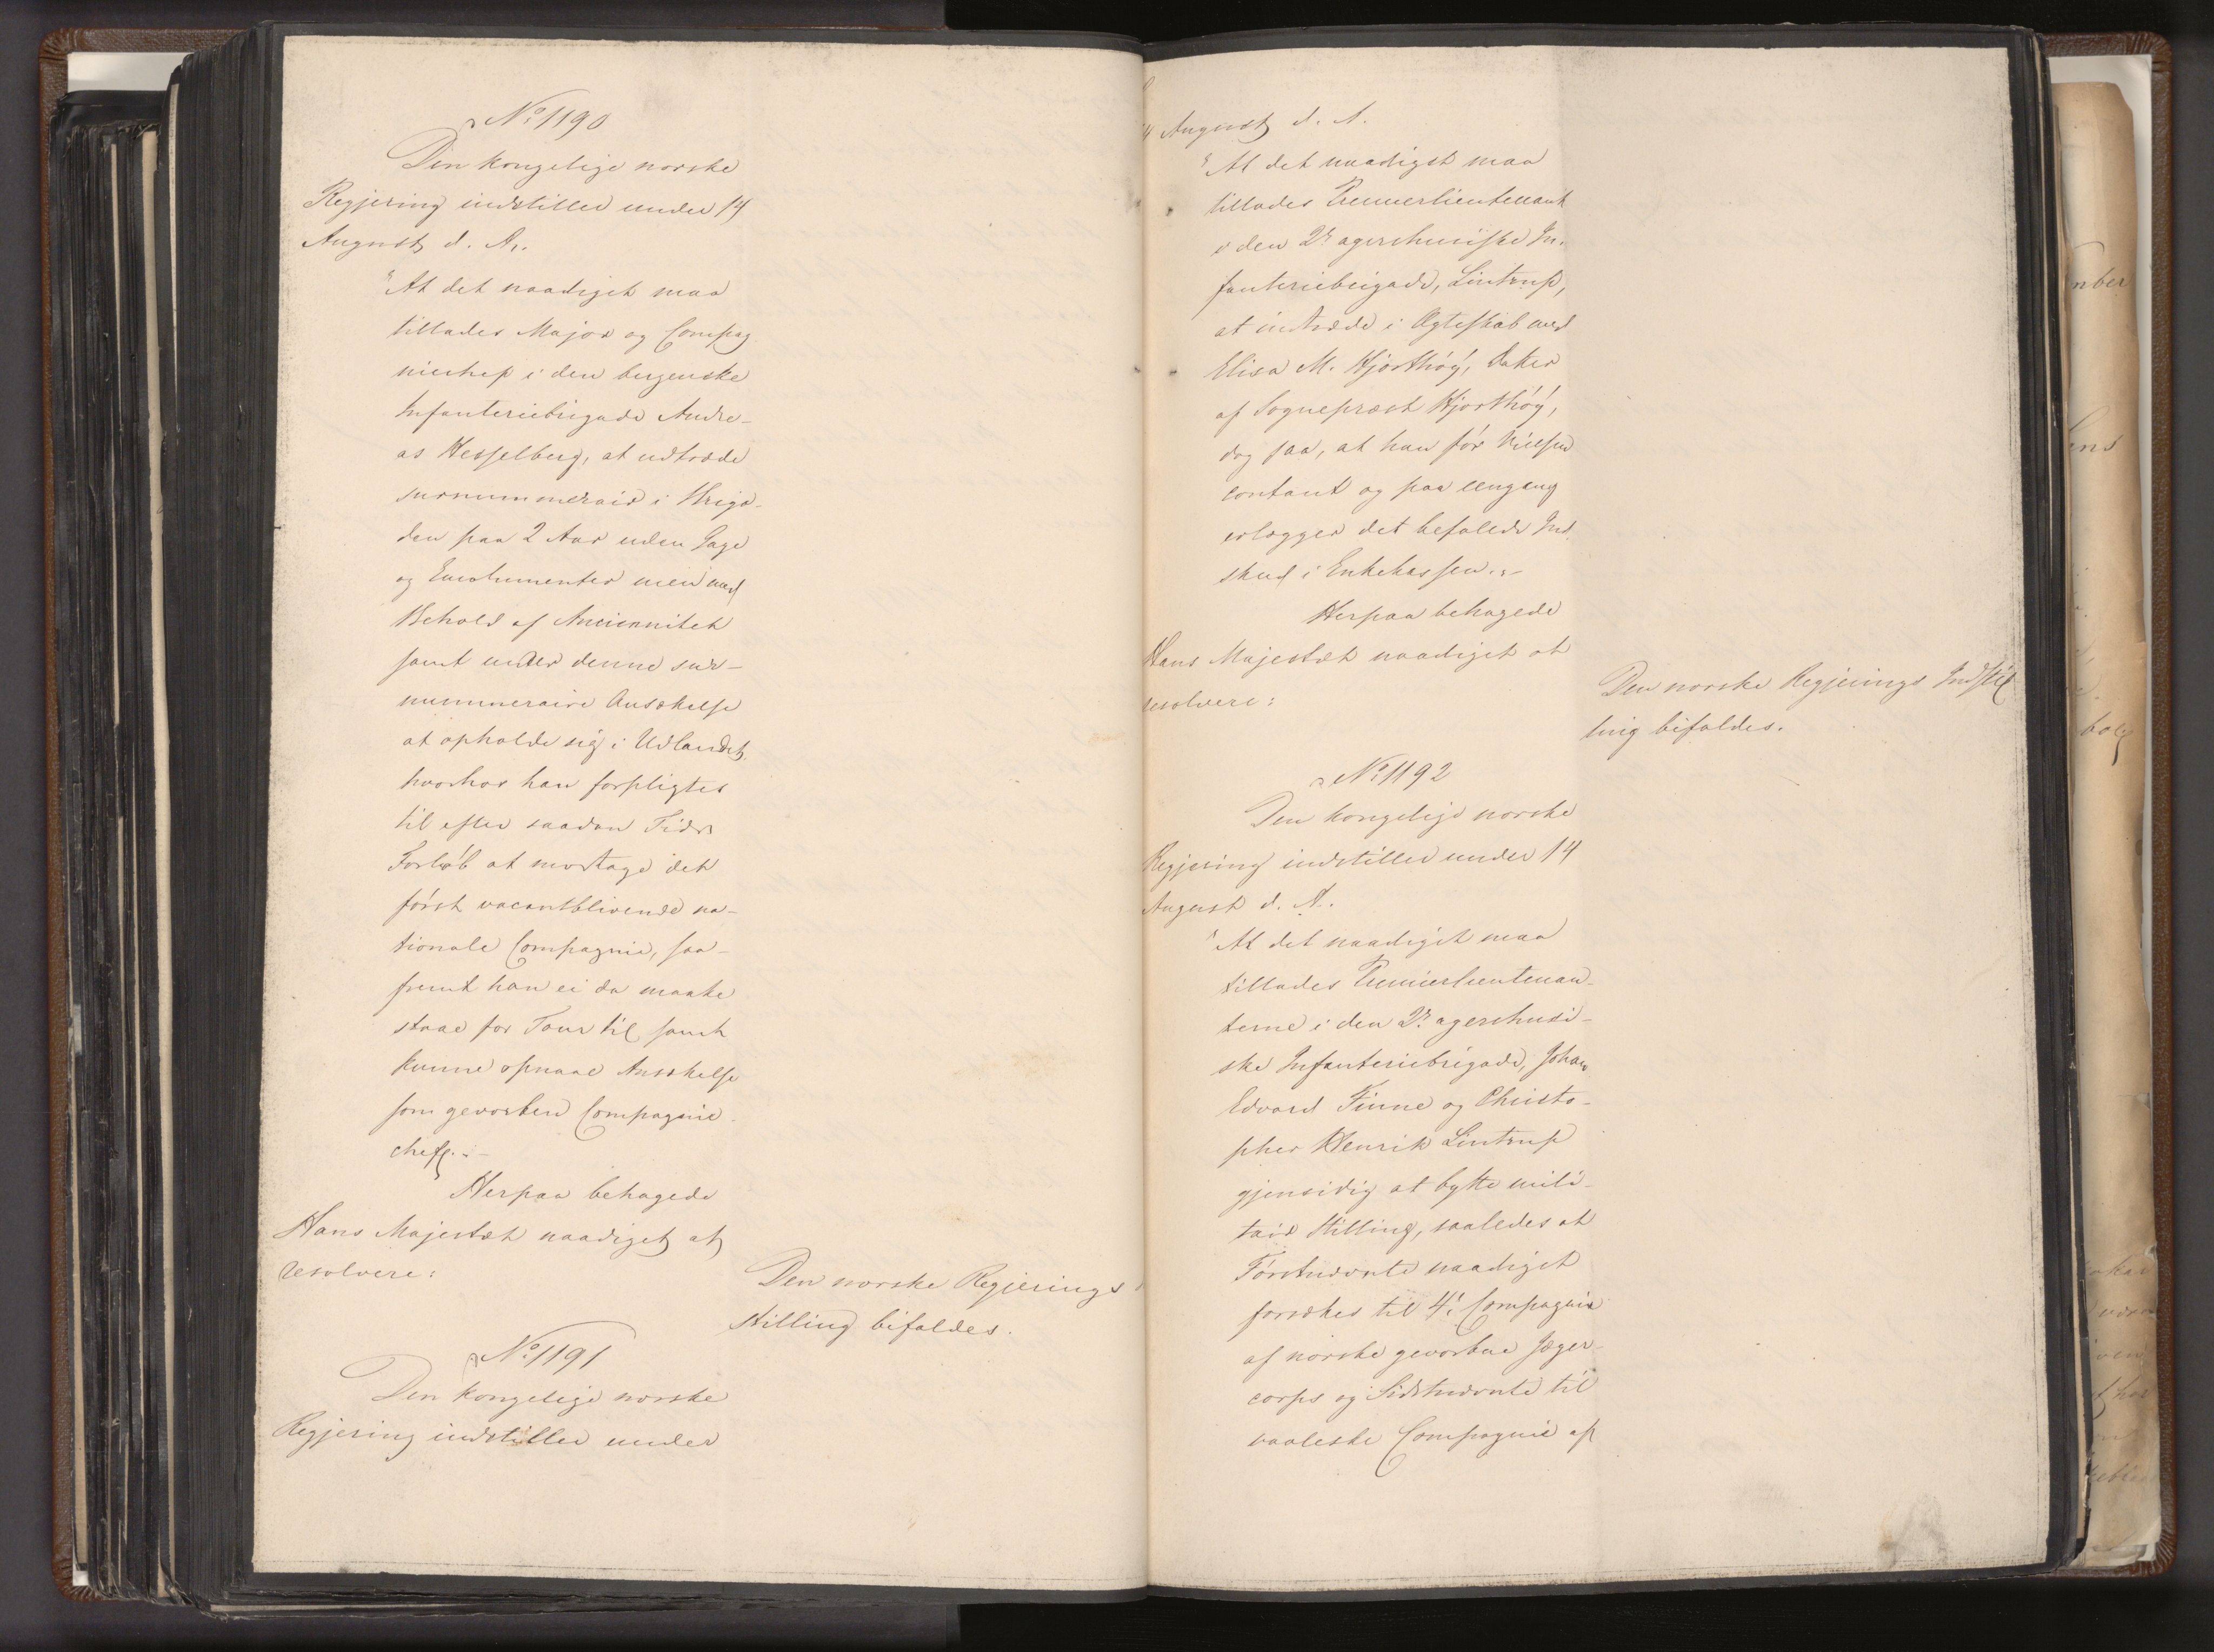 No 1190
Den kongelige norske
Regjering indstiller under 14
August d. A.
"At det naadigst maa
tillades Major og Compag
niechef i den bergenske
Infanteriebrigade Andre-
as Hesselberg, at udtræde
surnummerair i Briga-
den paa 2 Aar uden Gage
og Emolumenter men med
Behold af Anciennitet
samt under denne sur-
nummeraire Ansættelse
at opholde sig i Udlandet,
hvorhos han forpligtes
til efter saadan Tids
Forløb at modtage det
først vacantblivende na-
tionale Compagnie, saa-
fremt han ei da maatte
staae for Tour til samt
kunne opnaae Ansættelse
som gevorben Compagnie-
chef."-
Herpaa behagede
Hans Majestæt naadigst at
resolvere:
Den norske Regjerings
stilling bifaldes.
No 1191
Den kongelige norske
Regjering indstiller under
14 August d. A.
"At det naadigst maa
tillades Premierlieutenant
i den 2n agershusiske In-
fanteriebrigade, Lintrup,
at indtræde i Ægteskab med
Elisa M. Hjorthöÿ, Datter
af Sognepræst Hjorthöÿ,
dog saa, at han før Vielsen
contant og paa eengang
erlægger det befalede Ind
skud i Enkekassen."-
Herpaa behagede
Hans Majestæt naadigst at
resolvere:
Den norske Regjerings Indstil
ling bifaldes.
No 1192
Den kongelige norske
Regjering indstiller under 14
August d. A.
"At det naadigst maa
tillades Premierlieutenan-
terne i den 2n agershusi-
ske Infanteriebrigade, Johan
Edvard Finne og Christo-
pher Henrik Lintrup
gjensidig at bytte mili-
tair Stilling, saaledes at
Førstnævnte naadigst
forsættes til 4' Compagnie
af norske gevorbne Jæger-
corps og Sidstnævnte til
vaalerske Compagnie af